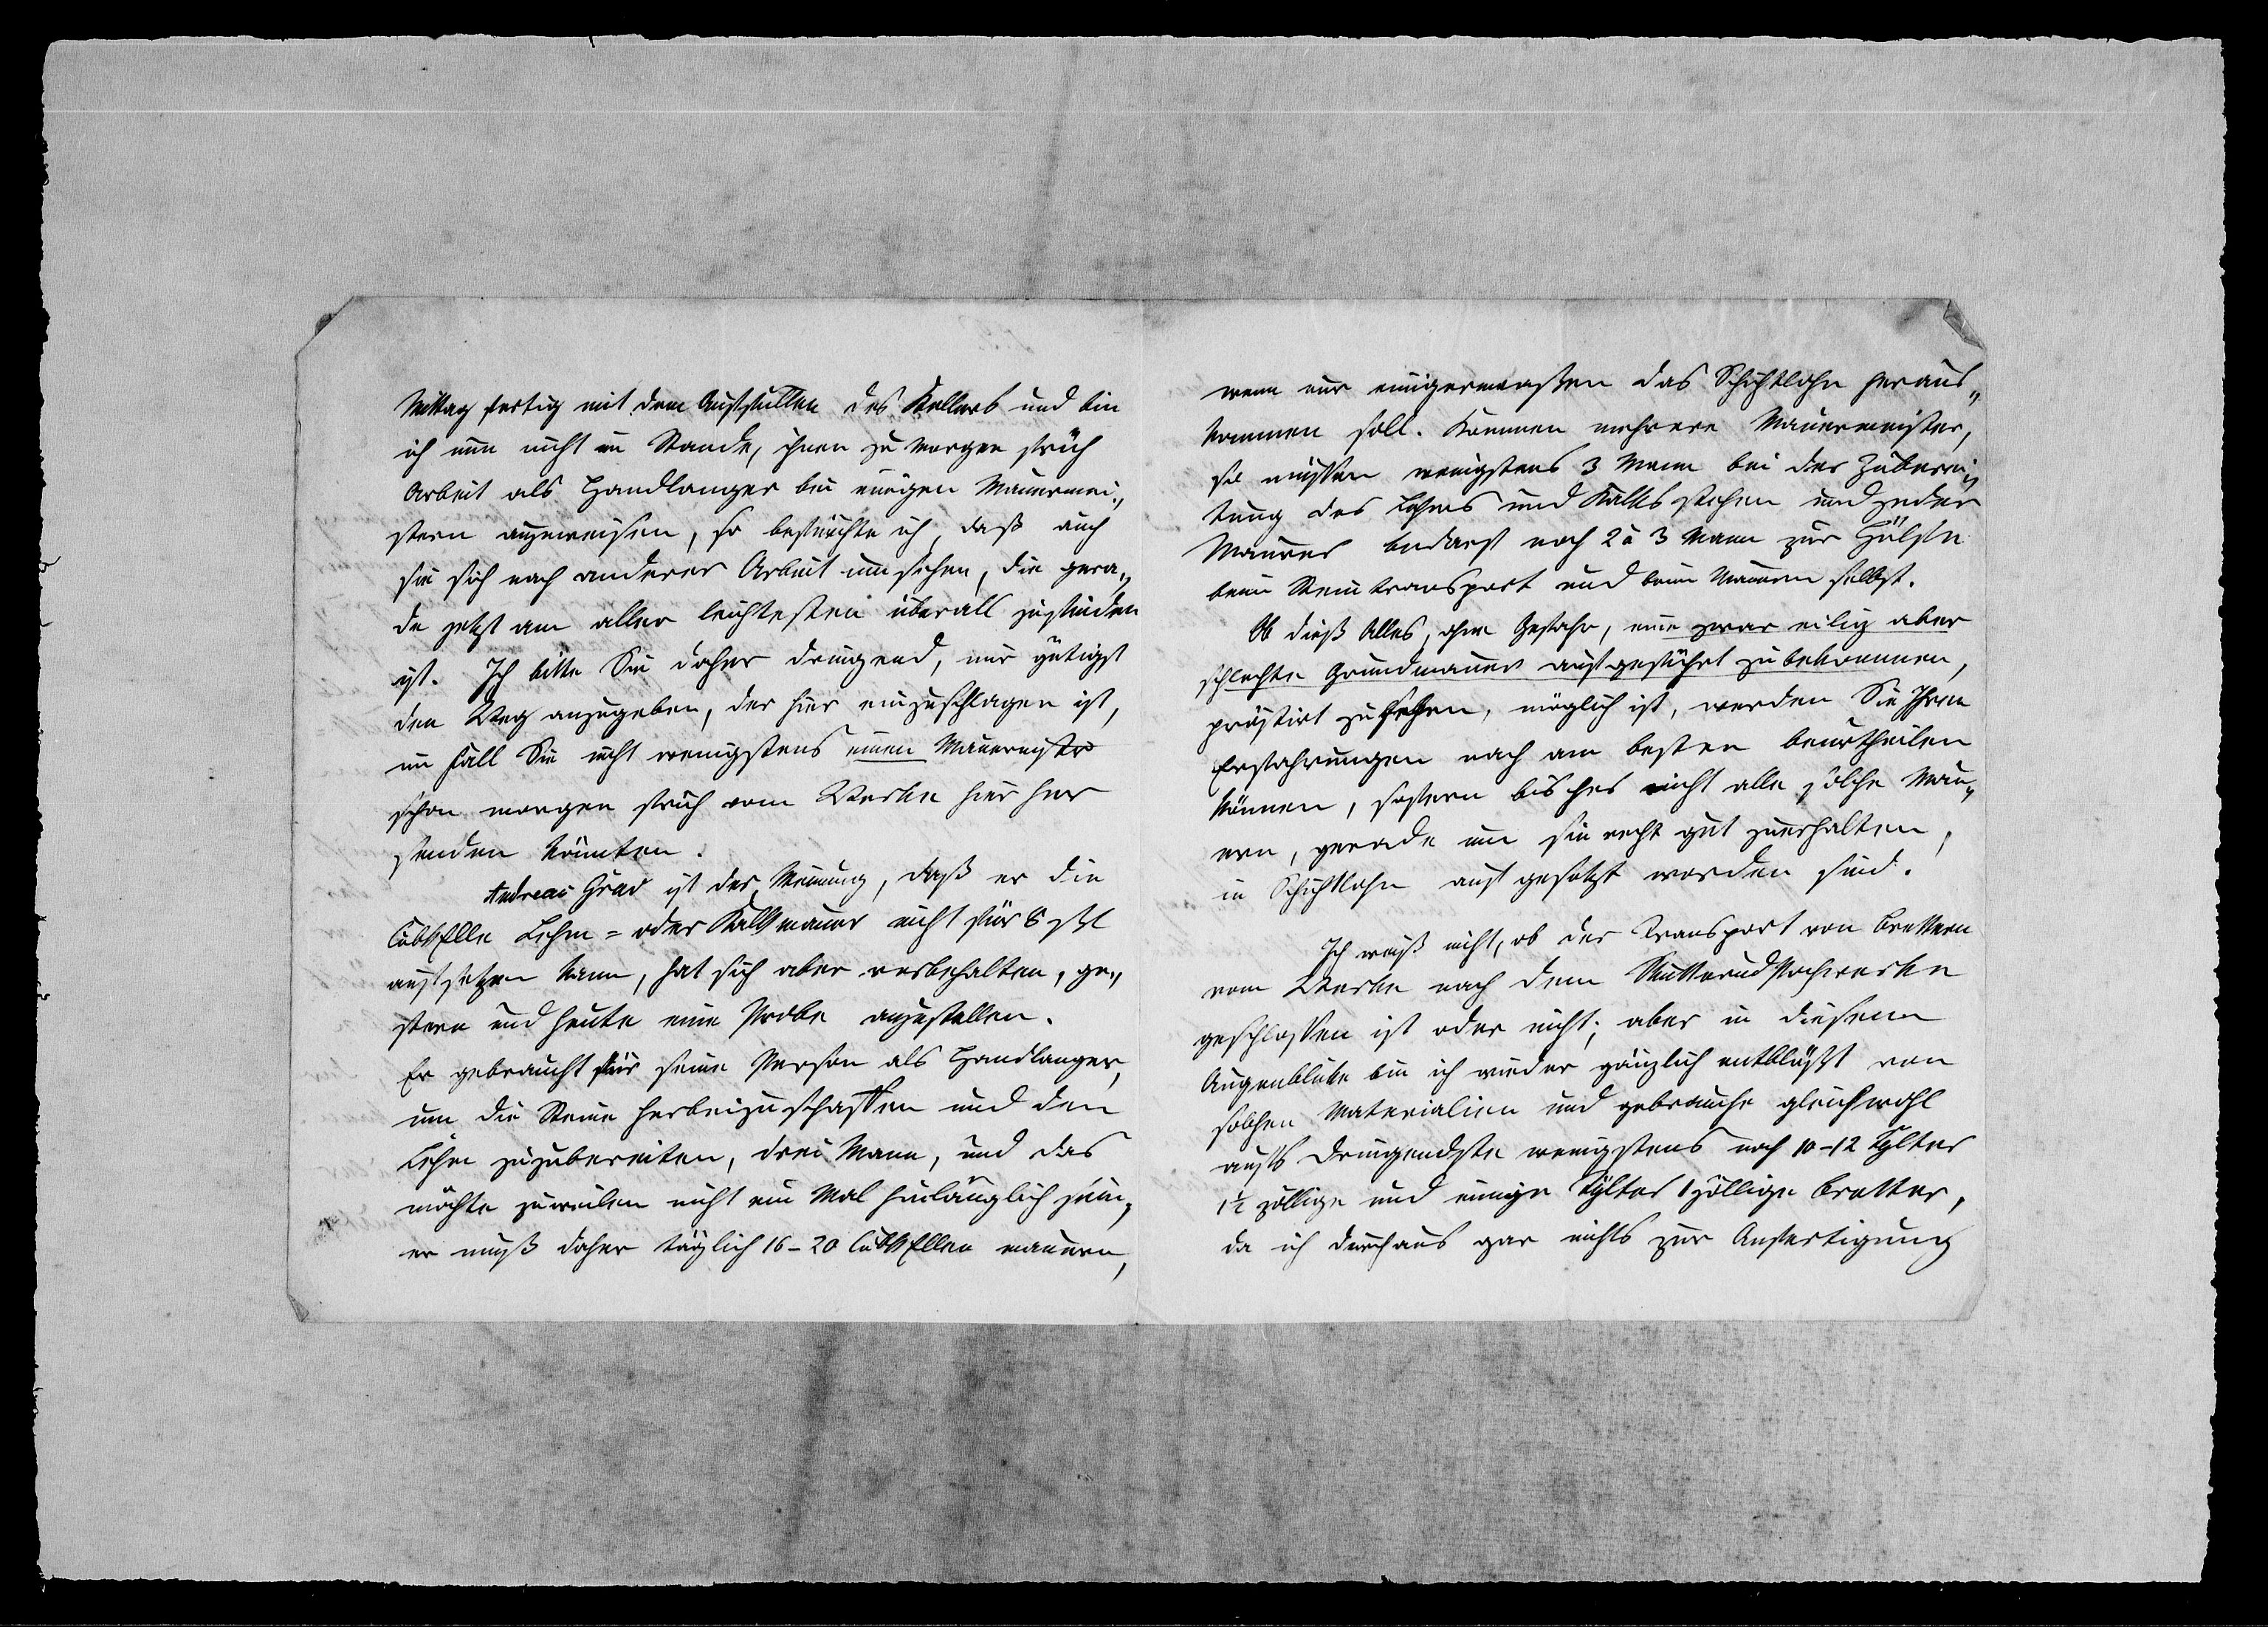 Mittag fertig mit dem Ausfüllen des Kellers und bin
ich nun nicht im Stande, ihnen zu morgen früh
Arbeit als Handlanger bei einigen Mauermei„
stern anzuweisen, so befürchte ich, daß auch
sie sich nach anderer Arbeit umsehen, die gera„
de jetzt am aller leichtesten überall zu finden
ist. Ich bitte Sie daher dringend, mir gütigst
den Weg anzugeben, der hier einzuschlagen ist,
im Fall Sie nicht wenigstens einen Mauermstr
schon morgen früh vom Werke hier her
senden könnten.
Andreas Grad ist der Meinung, daß er die
CubkElle Lehm = oder Kalkmauer nicht für 8 ßl
aufsetzen kann, hat sich aber vorbehalten, ge„
stern und heute eine Probe anzustellen.
Er gebraucht für seine Person als Handlanger,
um die Steine herbeizuschaffen und den
Lehm zuzubereiten, drei Mann, und das
möchte zuweilen nicht ein Mal hinlänglich sein,
er muß daher täglich 16–20 CubkEllen mauern,
wenn nur einigermaaßen das Schichtlohn heraus„
kommen soll. Kommen mehrere Mauermeister,
so müssen wenigstens 3 Mann bei der Zuberei„
tung des Lehms und Kalks stehen und jeder
Maurer bedarf noch 2 à 3 Mann zur Hülfe
beim Steintransport und beim Mauern selbst.
Ob dieß Alles, ohne Gefahr, eine zwar eilig aber
schlechte Grundmauer aufgeführt zu bekommen,
prästirt zu sehen, möglich ist, werden Sie Ihren
Erfahrungen nach am besten beurtheilen
können, sofern bisher nicht alle solche Mau„
ern, gerade um sie recht gut zu erhalten,
in Schichtlohn aufgesetzt worden sind.
Ich weiß nicht, ob der Transport von Brettern
vom Werke nach dem Skutterudpochwerke
geschlossen ist oder nicht; aber in diesem
Augenblicke bin ich wieder gänzlich entblößt von
solchen Materialien und gebrauche gleichwohl
aufs dringendste wenigstens noch 10–12 Tylter
1½ zöllige und einige Tylter 1zöllige Bretter,
da ich durchaus gar nichts zur Anfertigung